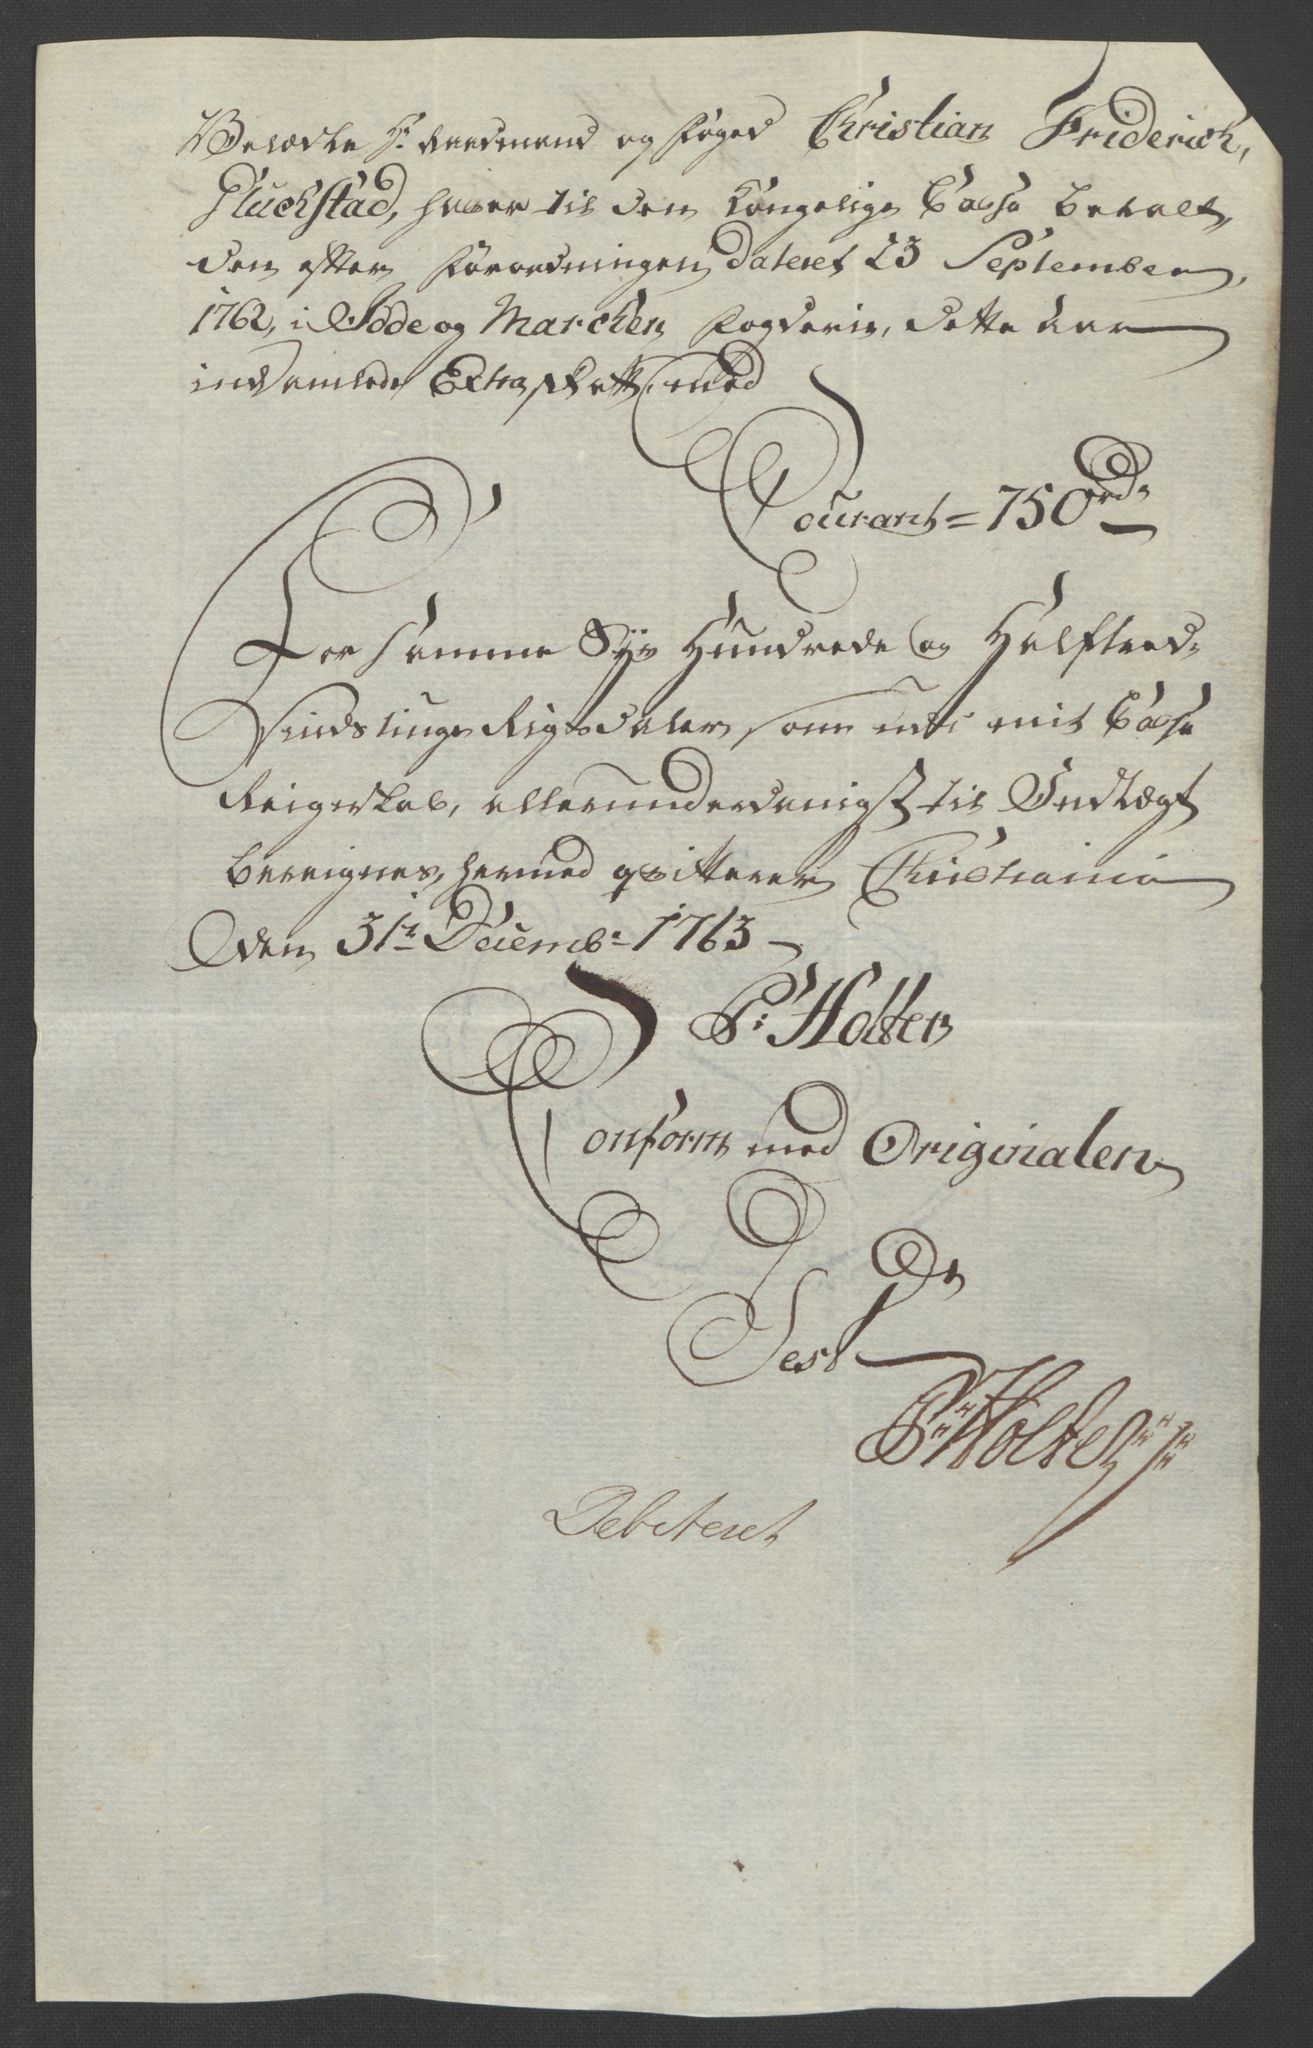 Velædle Hr. Raadmand og Foged Christian Friderich,
Gluckstad, haver til den Kongelige Cassa betalt,
den efter Forordningen dateret 23 September,
1762, i Idde og Marchen Fogderie, dette Aar
indsamlede Extra Skatt, med
Courant = 750 rdr
For samme Syv Hundrede og Halftred-
sindstiuge Rigsdaler, som udi mit Cassa
Reigenskab, allerunderdanigst til Indtægt
bereignes, hermed qvitterer, Christiania
Den 31te Decembr 1763
P: Holter
Conform med Originalen
Test
P: Holter
Debiteret